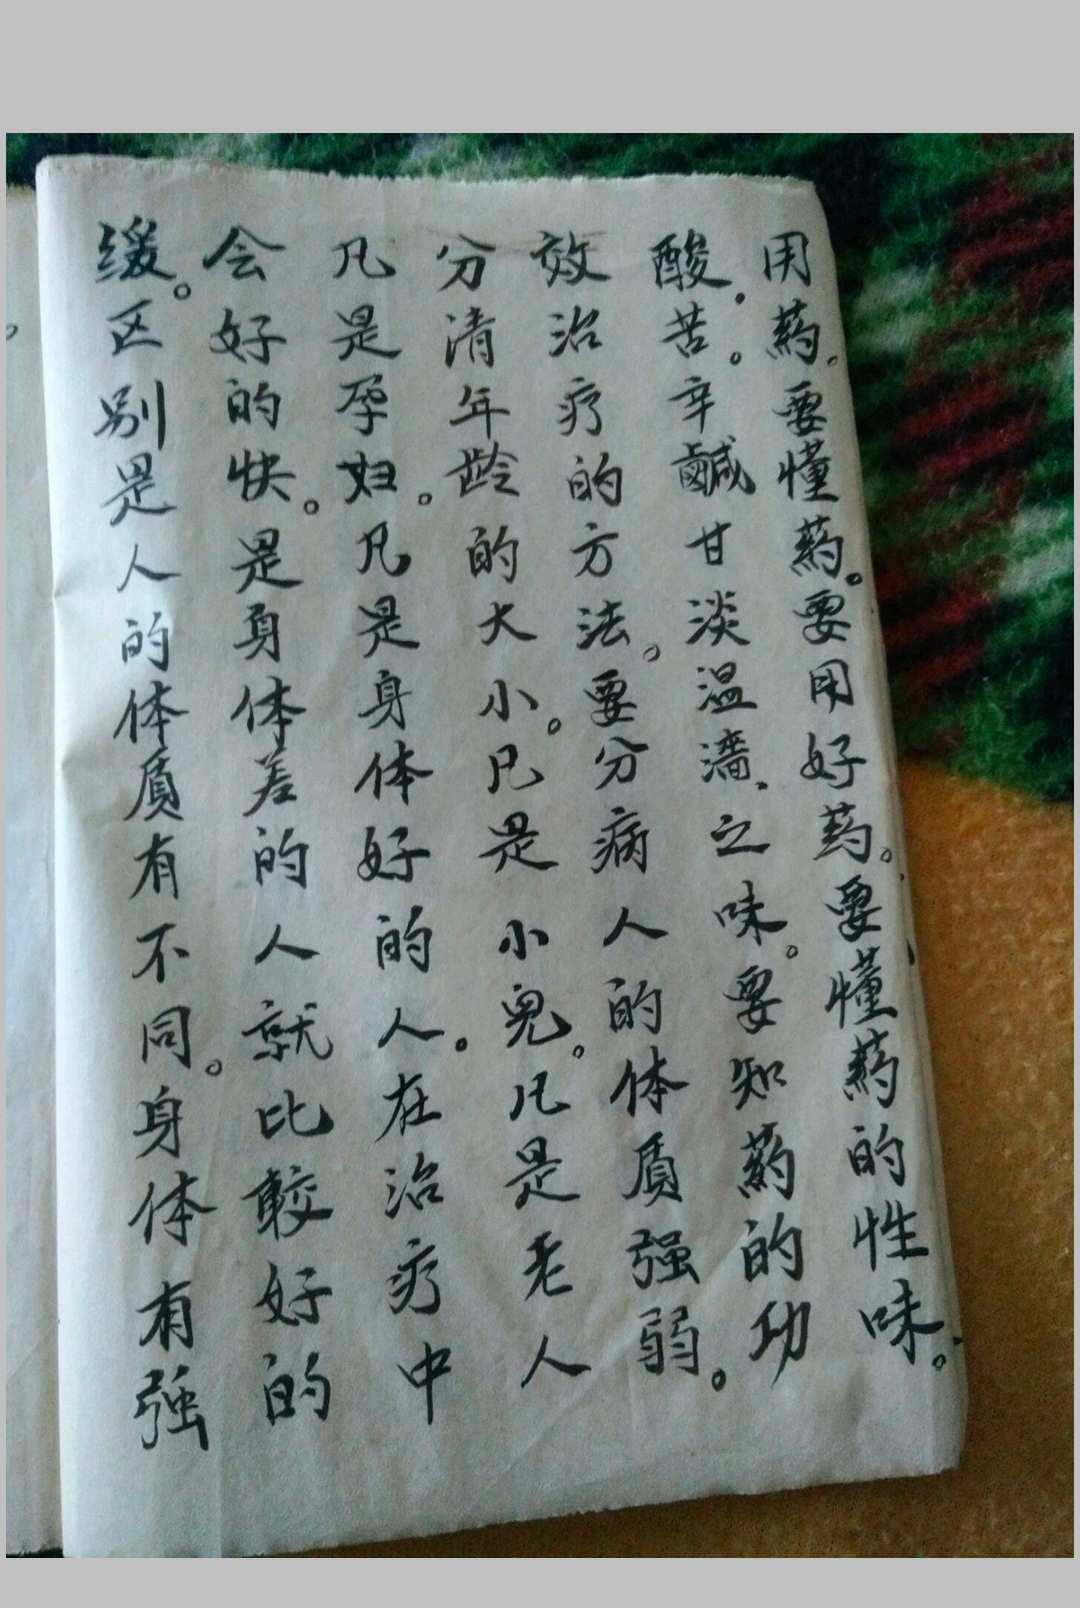 用葯。要懂葯。要用好药。要懂葯的性味。
酸。苦。辛鹹甘淡温濇、之味。要知葯的功
效治疗的方法。要分病人的体质强弱。
分清年龄的大小。凡是小兒。凡是老人
凡是孕妇。凡是身体好的人。在治疗中
会好的快。是身体差的人就比較好的
缓。区别是人的体质有不同。身体有强